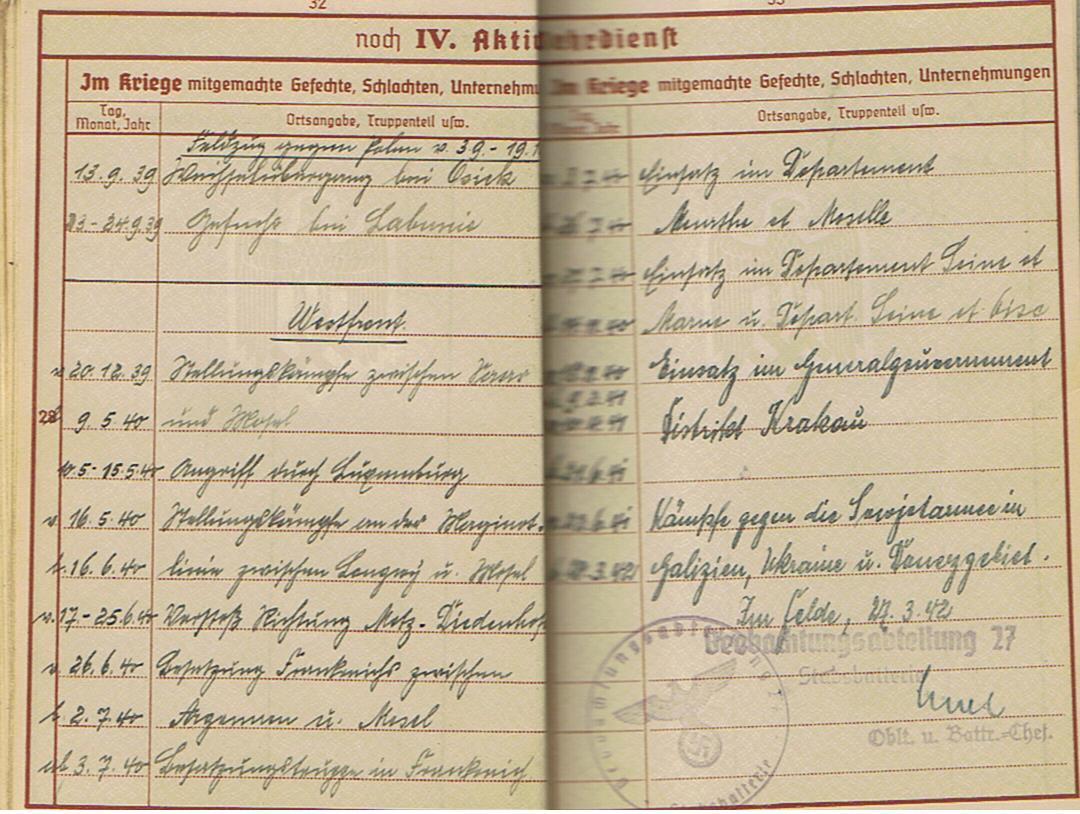 32
33
noch IV. Aktivwehrdienst
Im Kriege mitgemachte Gefechte, Schlachten, Unternehmu
Tag, Monat, Jahr
Ortsangabe, Truppenteil usw.
Feldzug gegen Polen v. 3.9. - 19.
13.9.39 Weichselübergang bei Osiek
13-24.9.39 Gefecht bei Labunie
Westfront
v. 20.12.39 Stellungskämpfe zwischen Saar
28 9.5.40 und Mosel
10.5-15.5.40 Angriff durch Luxemburg
v. 16.5.40 Stellungskämpfe an der Maginot-
b. 16.6.40 linie zwischen Longwy u. Mosel
v. 17.-25.6.40 Vorstoß Richtung Metz-Diedenhof
v. 26.6.40 Besetzung Frankreichs zwischen
b. 2.7.40 Argonnen u. Mosel
ab 3.7.40 Besatzungstruppe in Frankreich
Im Kriege mitgemachte Gefechte, Schlachten, Unternehmungen
Ortsangabe, Truppenteil usw.
Einsatz im Departement
Meurthe et Moselle
Einsatz im Departement Seine et
Marne u. Depart. Seine et Oise
Einsatz im Generalgouvernement
Distrikt Krakau
Kämpfe gegen die Sowjetarmee in
28.3.42 Galizien, Ukraine u. Donezgebiet.
Im Felde, 27.3.42
Beobachtungsabteilung 27
Stabsbatterie
Oblt. u. Battr.-Chef.
Beobachtungsabteilung 27
Stabsbatterie